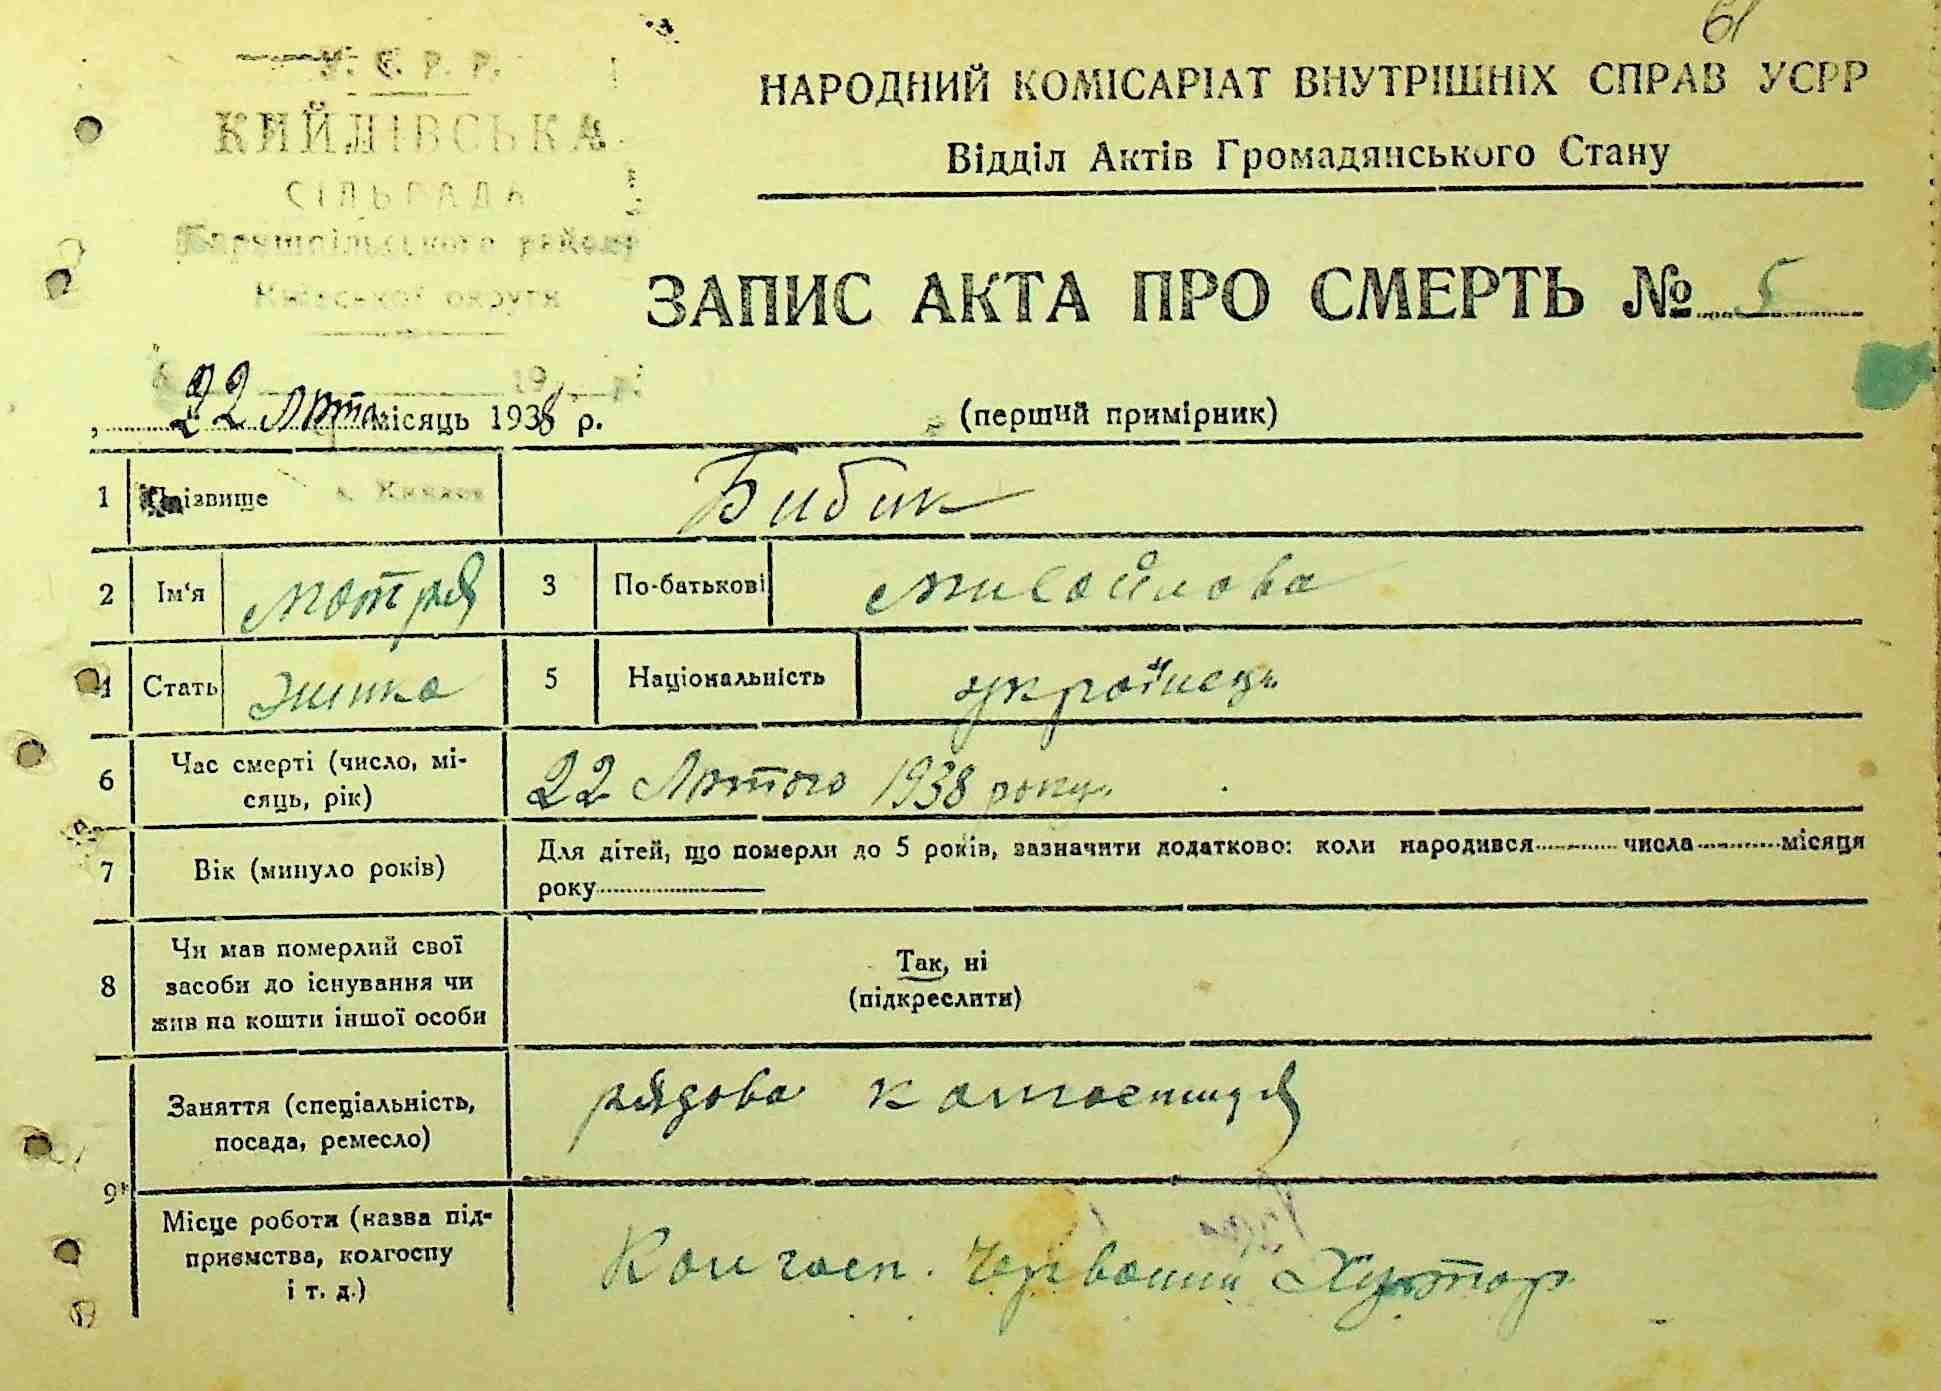 61
У. С. Р. Р.
КИЙЛІВСЬКА
СІЛЬРАДА
Баришпільського району
Київської округи
НАРОДНИЙ КОМІСАРІАТ ВНУТРІШНІХ СПРАВ УСРР
Відділ Актів Громадянського Стану
ЗАПИС АКТА ПРО СМЕРТЬ № 5
22 Лютого місяць 1938 р.
(перший примірник)
1 Прізвище Бибик
2 Ім'я Мотря 3 По-батькові Михайлова
4 Стать жінка 5 Національність українець
6 Час смерті (число, мі-
сяць, рік) 22 Лютого 1938 року.
7 Вік (минуло років) Для дітей, що померли до 5 років, зазначити додатково: коли народився числа місяця
року
8 Чи мав померлий свої
засоби до існування чи
жив на кошти іншої особи
Так, ні
(підкреслити)
9 Заняття (спеціальність,
посада, ремесло) рядова колгоспниця
Місце роботи (назва під-
приємства, колгоспу
і т. д.) Колгосп. Червоний Хутор